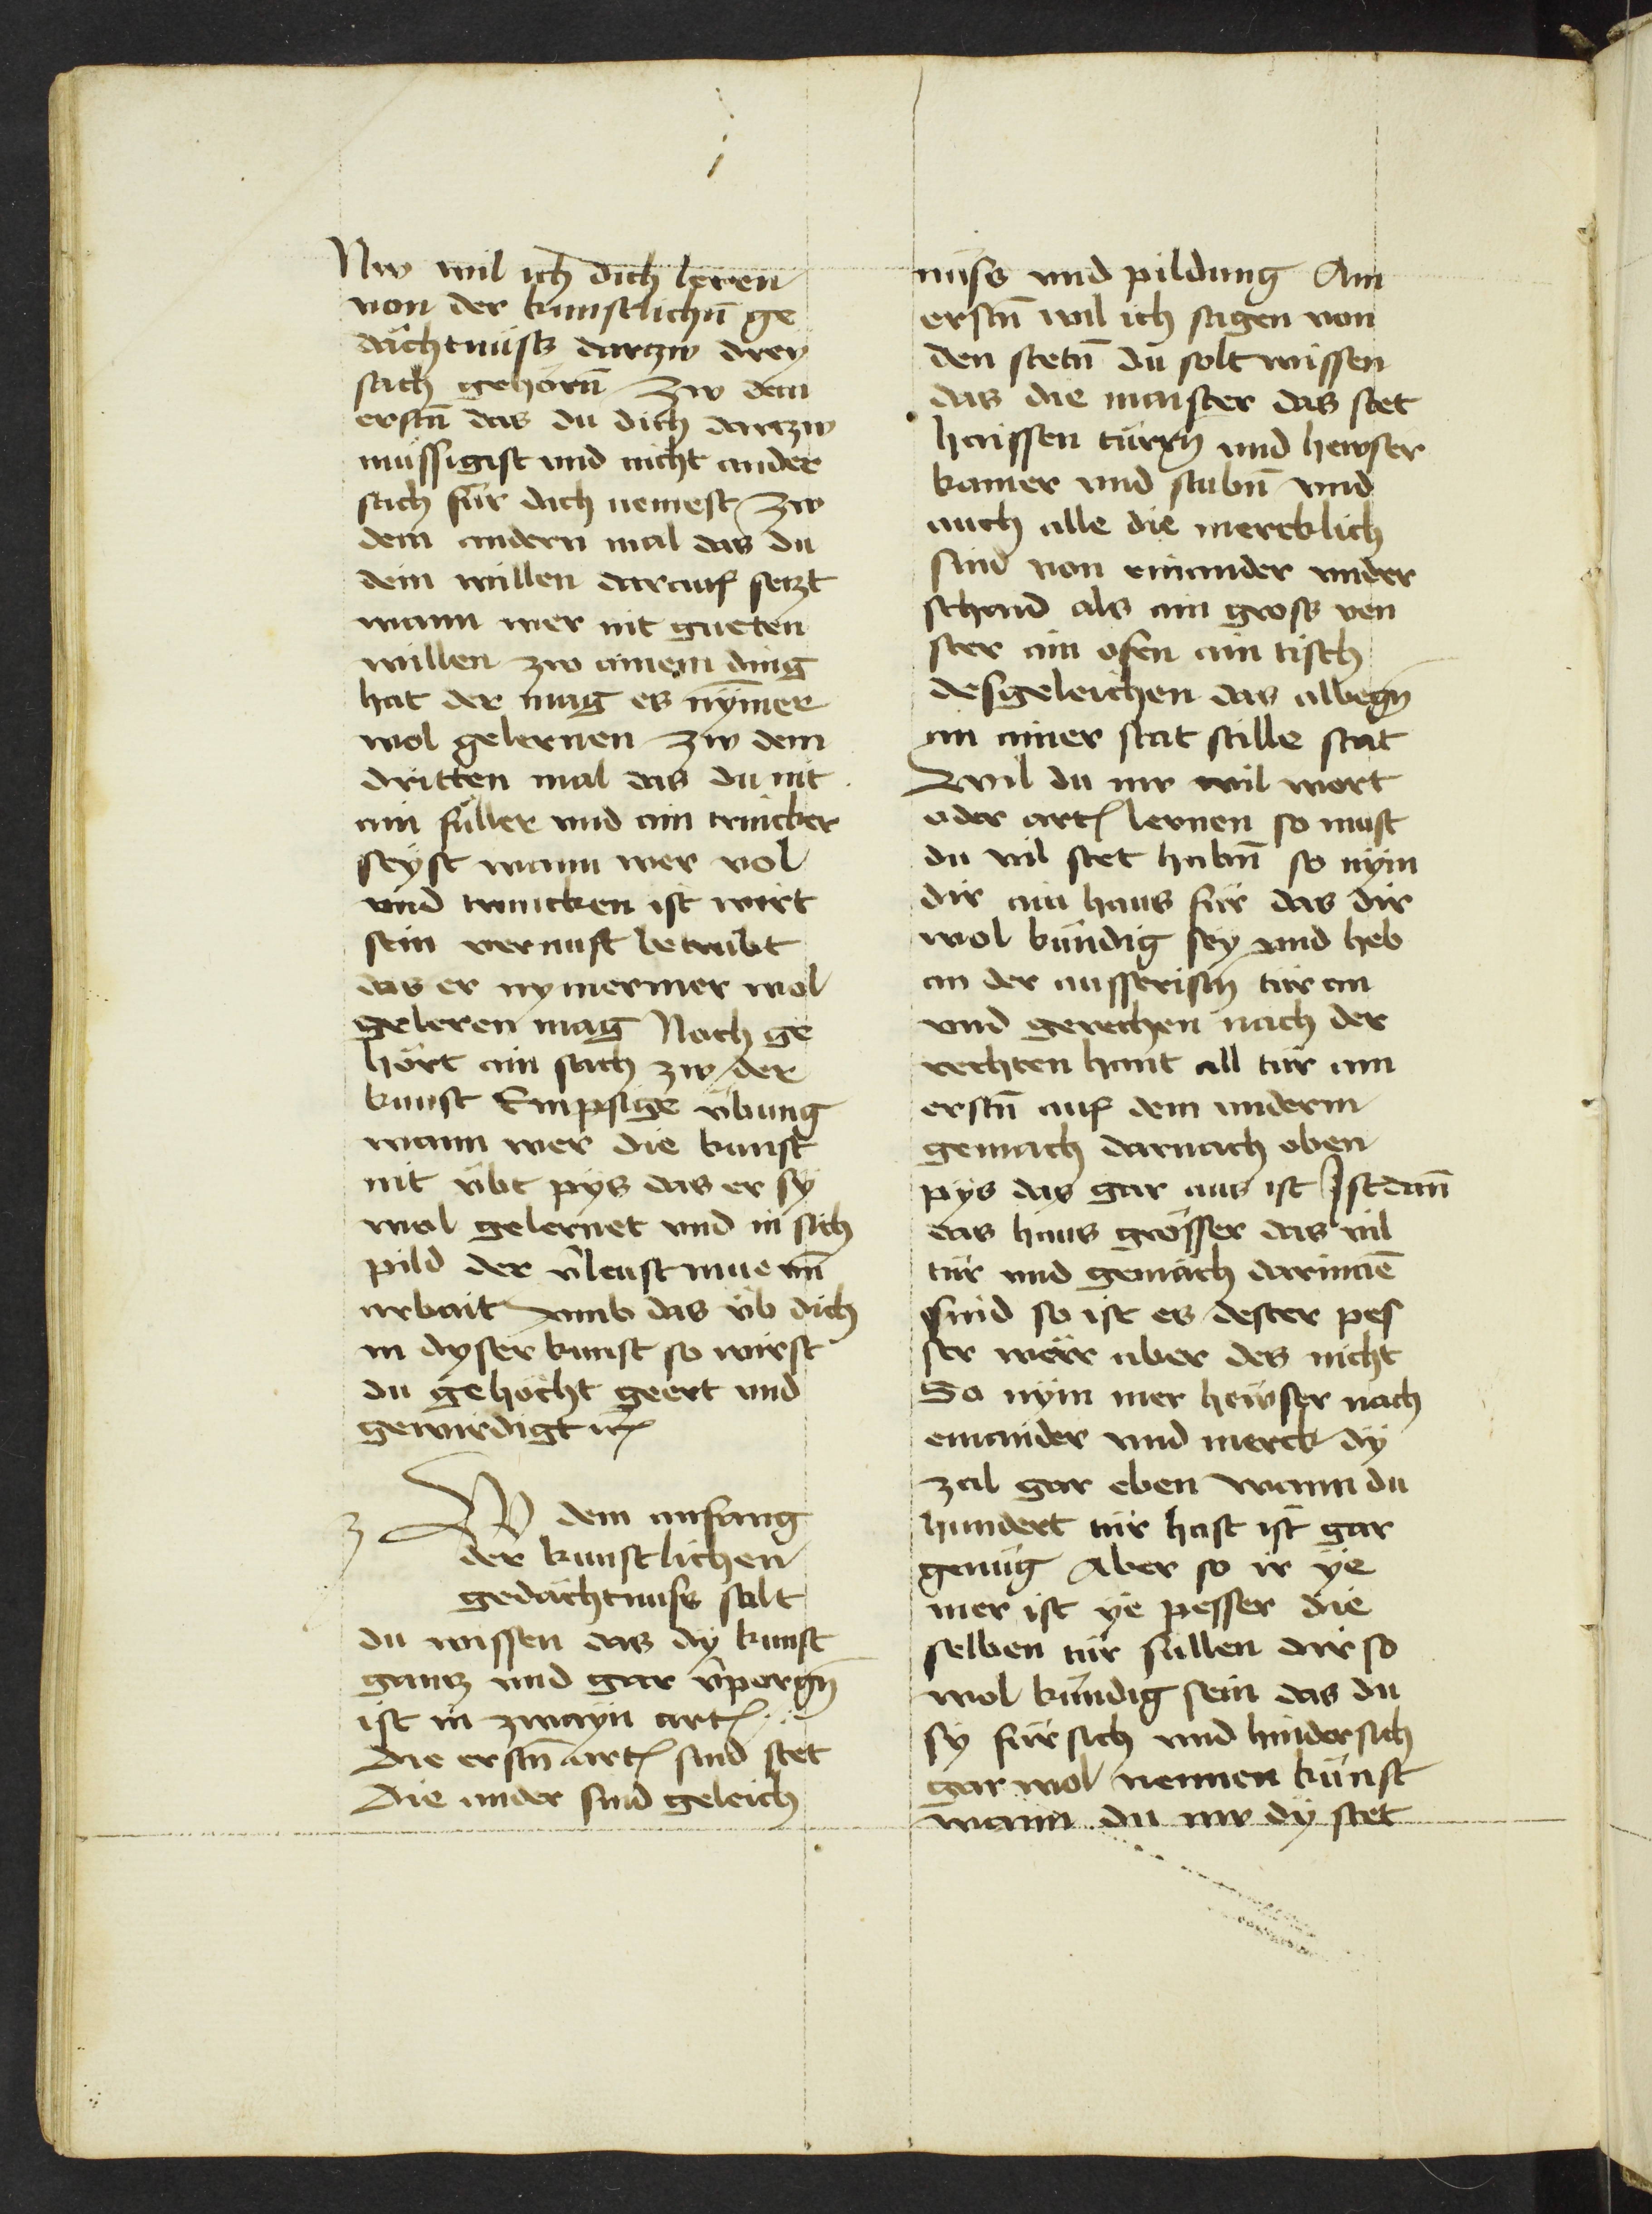 Nw wil ich dich leren
von der kunstlichn̄ ge
dächtnüsß dartzw drey
sach gehörn̄ Zw dem
erstn̄ das du dich dartzw
müssigist vnd nicht ander
sach für dich nemest Zw
dem andern mal das du
dein willen darauf setzt
wann wer nit gueten
willen zw ainem ding
hat der mag es nÿmer
wol gelernen Zw dem
dritten mal das du nit
ain füller vnd ain trincker
seyst wann wer vol
vnd truncken ist wirt
sein vernuft betrubt
das er nymermer wol
geleren mag Noch ge
hört ain sach zw der
kunst Empsige übung
wann wer die kunst
nit übt pys das er sy
wol gelernet vnd in sich
pild der v̂leust mue vn̄
arbait vmb das üb dich
in dyser kunst so wirst
du gehöcht geert vnd
gewirdigt etc
z W dem anfang
der kunstlichen
gedachtnuss solt
du wissen das dÿ kunst
gantz vnd gar v̂porgn̄
ist in zwayn artꝭ
Die erstn̄ artꝭ sind stet
Die ander sind geleich
nüss vnd pildung Am
erstn̄ wil ich sagen von
den stetn̄ du solt wissen
das die maister das stet
haissen türrn̄ vnd hewser
kamer vnd stubn̄ vnd
auch alle die mercklich
sind von einander vnder
schaid als ain gross ven
ster ain ofen ain tisch
desgeleichen das albegn̄
an ainer stat stille stat
Wil du nw vil wort
oder artꝭ lernen so must
du vil stet habn̄ so nÿm
dir ain haus für das dir
wol kündig sey vnd heb
an der ausseristn̄ tür an
vnd gerechen nach der
rechten hant all tür am
erstn̄ auf dem underm
gemach darnach oben
pys das gar aus ist Ist dan̄
das haus grösser das vil
tür vnd gemach darinnē
sind so ist es dester pes
ser wërr aber des nicht
So nÿm mer hewser nach
einander vnd merck dÿ
zal gar eben wann du
hundert tür hast ist gar
genüg Aber so ir ÿe
mer ist ÿe pesser die
selben tür sullen dir so
wol kündig sein das du
sy für sich vnd hindersich
gar wol nennen künst
wann du nw dÿ stet